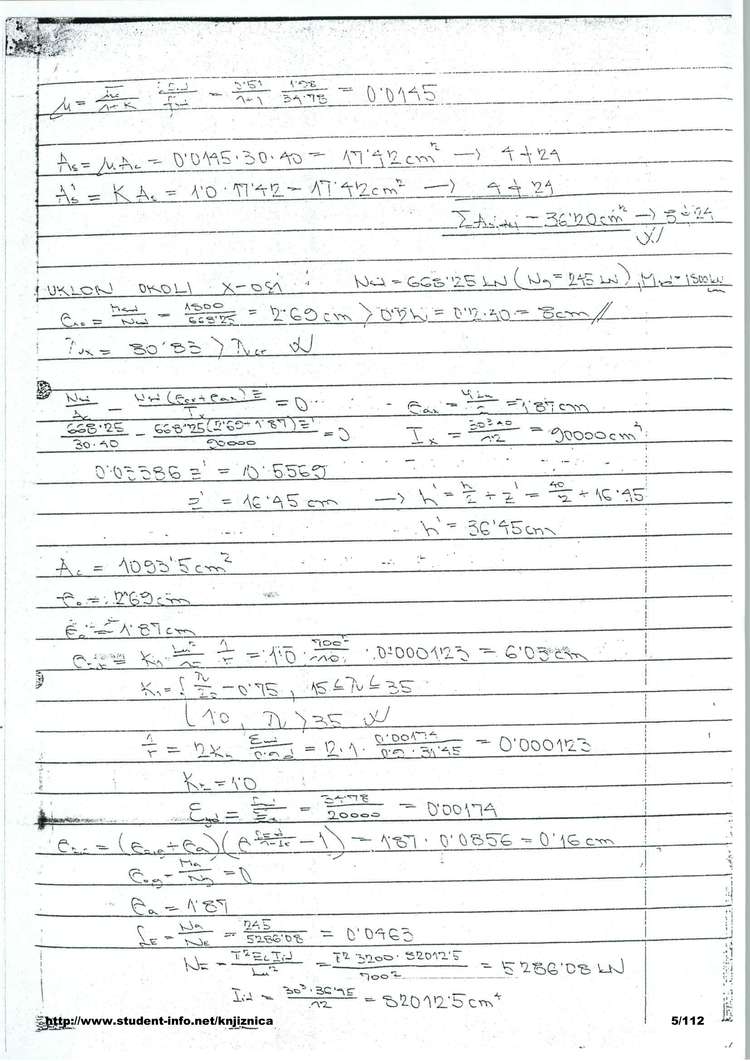 μ = μ̄/(1-K) · fcd/fyd = 0'51/(1+1) · 1'98/34'78 = 0'0145
As = μ·Ac = 0'0145·30·40 = 17'42 cm² → 4 ϕ 24
As' = K As = 1'0·17'42 = 17'42 cm² → 4 ϕ 24
ΣAs,dej = 36'20 cm² → 8 ϕ 24
UKLON OKOLI X-OSI : Nsd = 668'25 kN (Ng = 245 kN), Msd = 1800 kN cm
eoo = Msd/Nsd = 1800/668'25 = 2'69 cm > 0'2h = 0'2·40 = 8 cm //
λux = 80'83 > λcr
Nsd/Ac - Nsd(eoz+eaz)z'/Ix = 0 eaz = 1'87 cm
668'25/30·40 - 668'25(2'69+1'87)z'/90000 = 0 Ix = 30³40/12 = 90000 cm⁴
0'03386 z' = 0'5569
z' = 16'45 cm → h' = h/2 + z' = 40/2 + 16'45
h' = 36'45 cm
Ac = 1093'5 cm²
eo = 2'69 cm
ea = 1'87 cm
= K1 Lu²/10 1/r = 1'0 · 700²/10 · 0'000123 = 6'03 cm
K1 = { λ/20 - 0'75 , 15 ≤ λ ≤ 35
1'0 , λ > 35
1/r = 2K2 εyd/0'9d = 2·1· 0'00174/0'9·31'45 = 0'000123
K2 = 1'0
εyd = fyd/Es = 34'78/20000 = 0'00174
e2c = (eog+ea)(e^… - 1) = 1'87 · 0'0856 = 0'16 cm
eog = Mg/Ng = 0
ea = 1'87
fE = Ng/NE = 245/5286'08 = 0'0463
NE = π²EcIid/Lu² = π² 3200 · 82012'5/700² = 5286'08 kN
Iid = 30³·36'45/12 = 82012'5 cm⁴
http://www.student-info.net/knjiznica 5/112